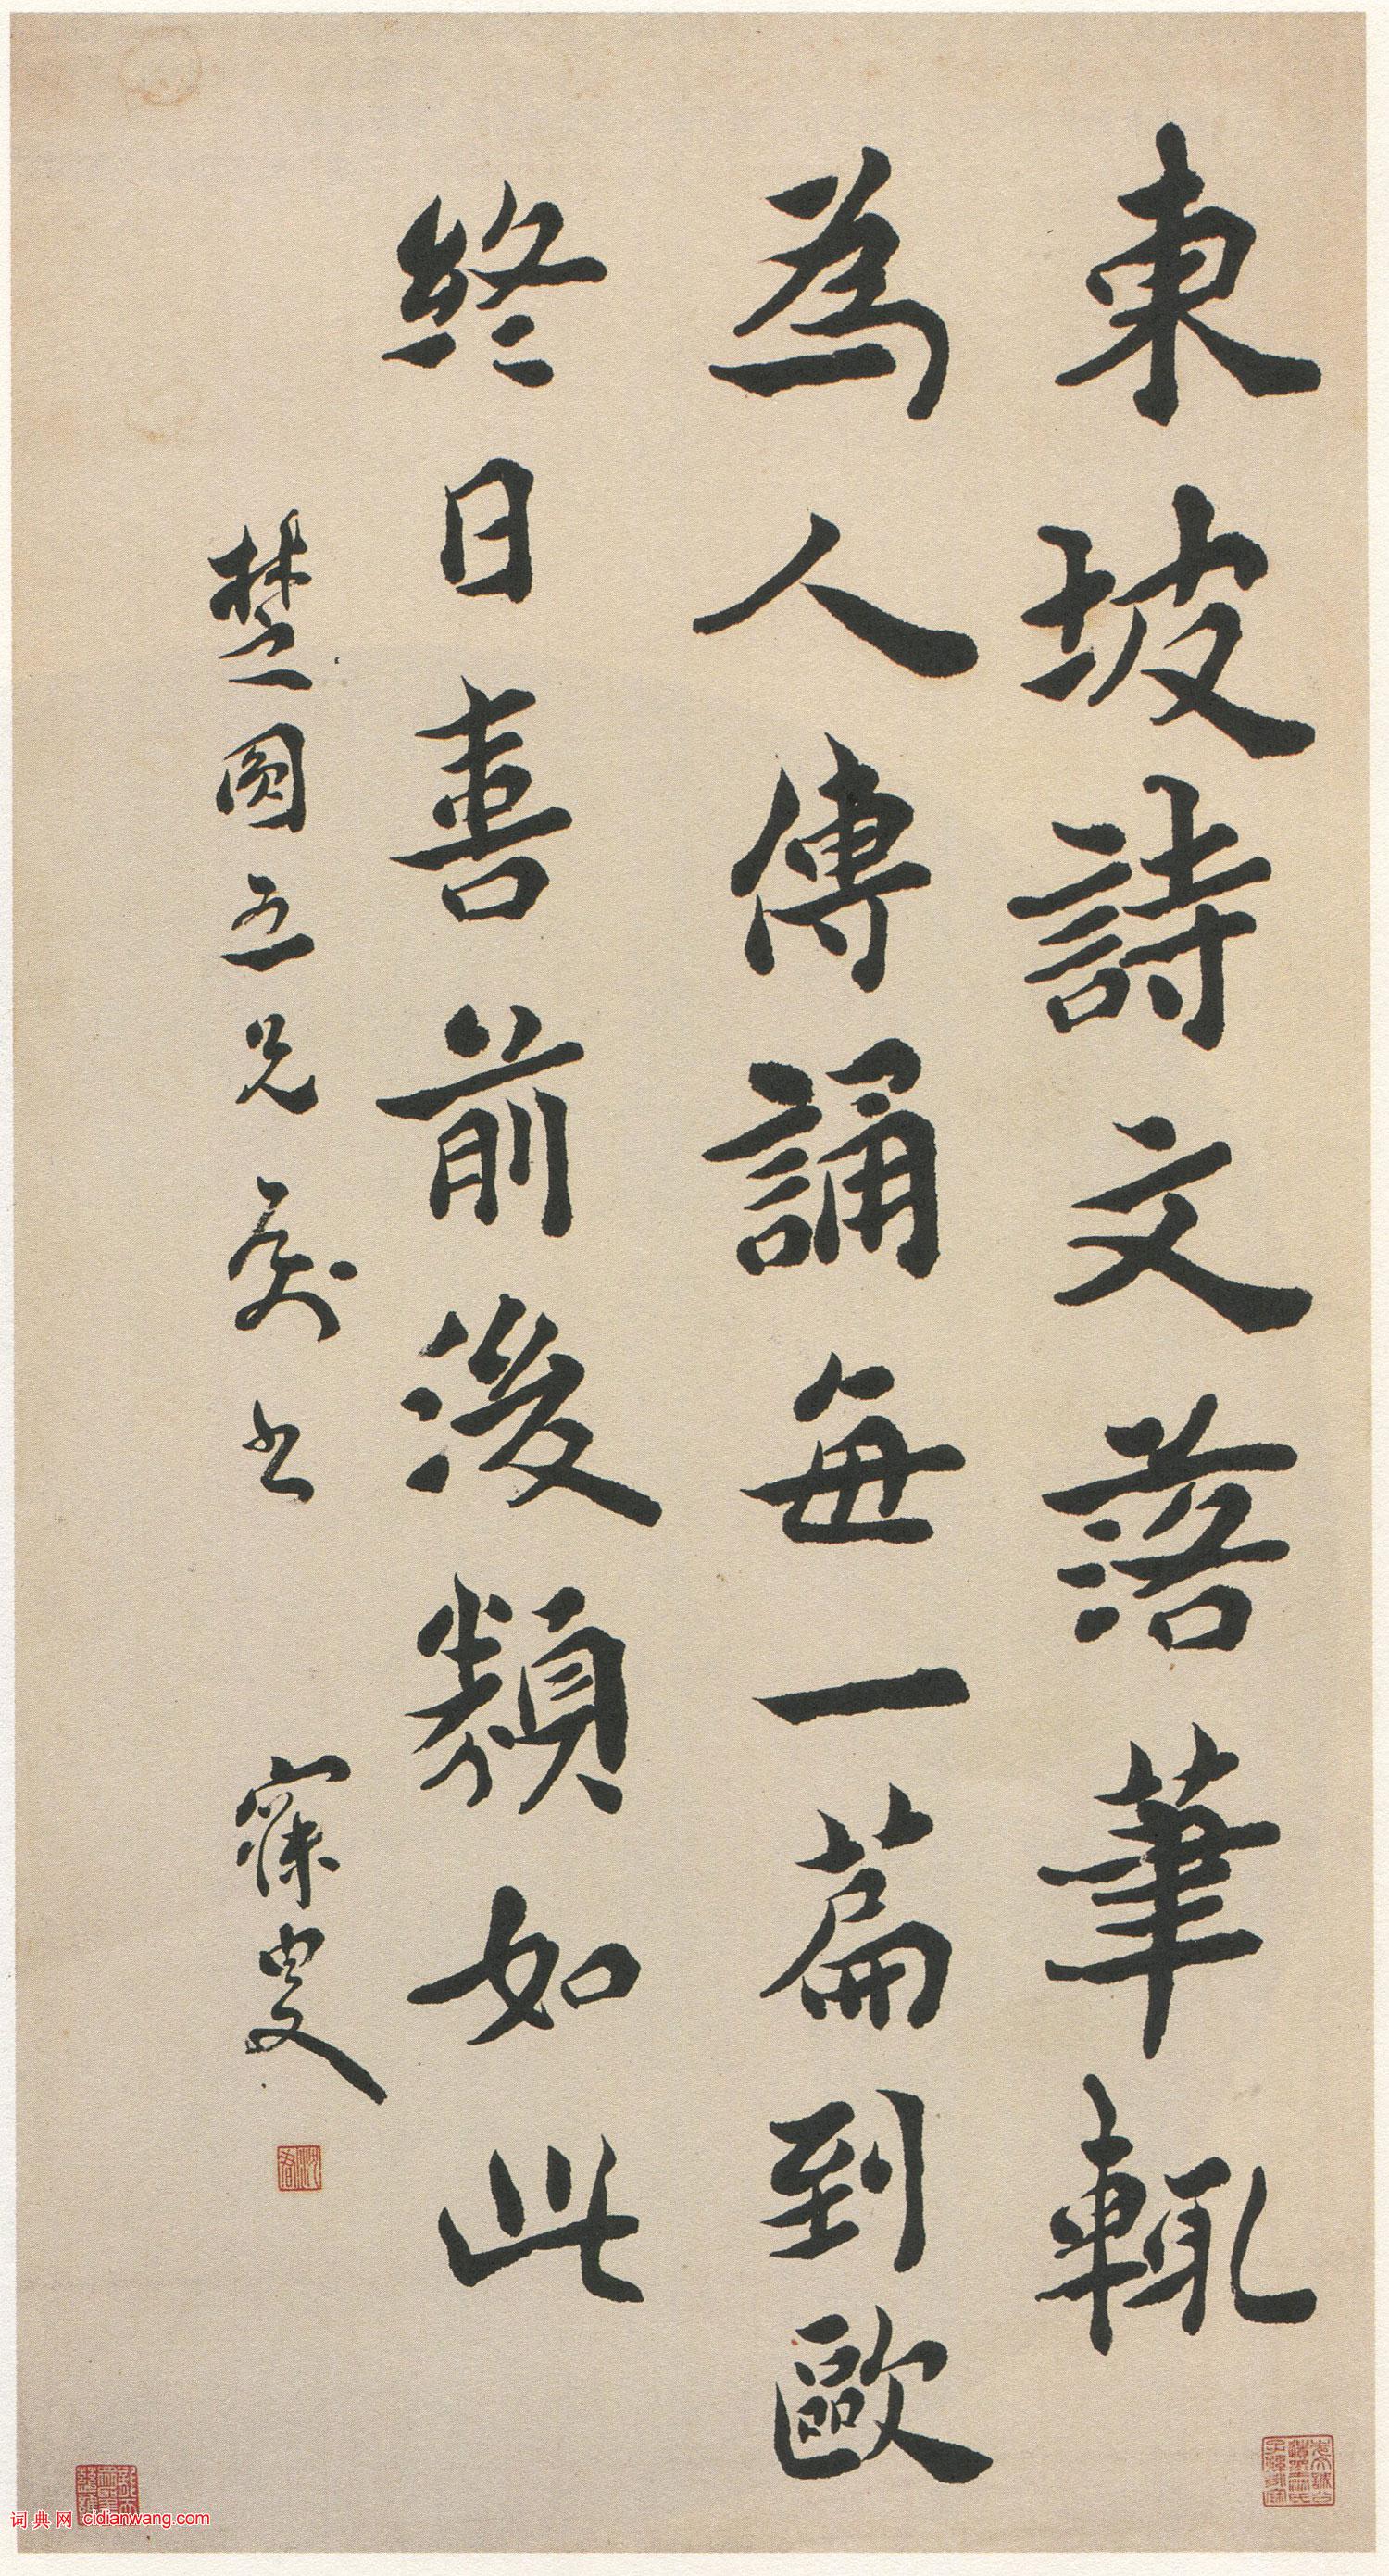 東坡詩文落筆輒
為人傳誦每一篇到歐
終日善前後類如此
楚圓五兄屬書
寐叟
词典网 cidianwang.com